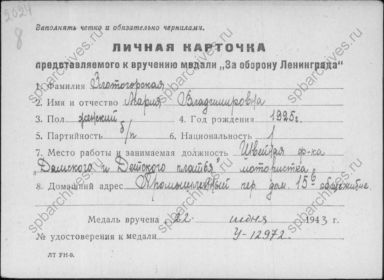 2024
8
Заполнять четко и обязательно чернилами.
ЛИЧНАЯ КАРТОЧКА
представляемого к вручению медали „За оборону Ленинграда“
1. Фамилия Злотогорская
2. Имя и отчество Мария Владимировна
3. Пол женский 4. Год рождения 1925г.
5. Партийность б/п 6. Национальность
7. Место работы и занимаемая должность Швейная ф-ка
„Дамского и Детского платья“ мотористка
8. Домашний адрес Промышленный пер. дом. 15 общежитие
Медаль вручена 22 июня 1943 г.
№ удостоверения к медали У-12972.
ЛТ УН-9.
spbarchives.ru